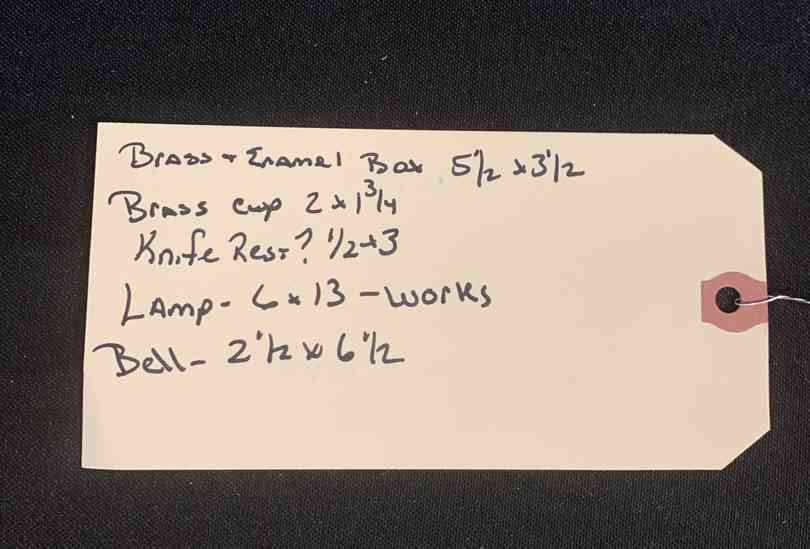 Brass + Enamel Box 5 1/2 x 3 1/2
Brass cup 2 x 1 3/4
Knife Rest? 1/2 x 3
Lamp - 6 x 13 - works
Bell - 2 1/2 x 6 1/2